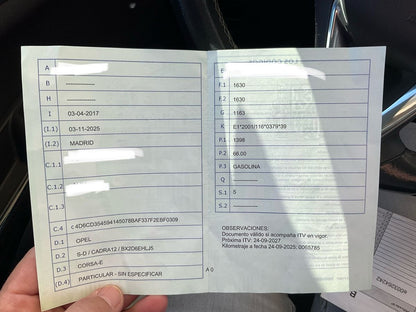 A
B -------------
H -------------
I 03-04-2017
(I.1) 03-11-2025
(I.2) MADRID
C.1.1
C.1.2
C.1.3
C.4 c 4D6CD354594145078BAF337F2EBF0309
D.1 OPEL
D.2 S-D / CADRA12 / BX2D6EHLJ5
D.3 CORSA-E
(D.4) PARTICULAR - SIN ESPECIFICAR
E
F.1 1630
F.2 1630
G 1163
K E1*2001/116*0379*39
P.1 1398
P.2 66.00
P.3 GASOLINA
Q -------------
S.1 5
S.2 -------------
OBSERVACIONES:
Documento válido si acompaña ITV en vigor.
Próxima ITV: 24-09-2027
Kilometraje a fecha 24-09-2025: 0065785
A0